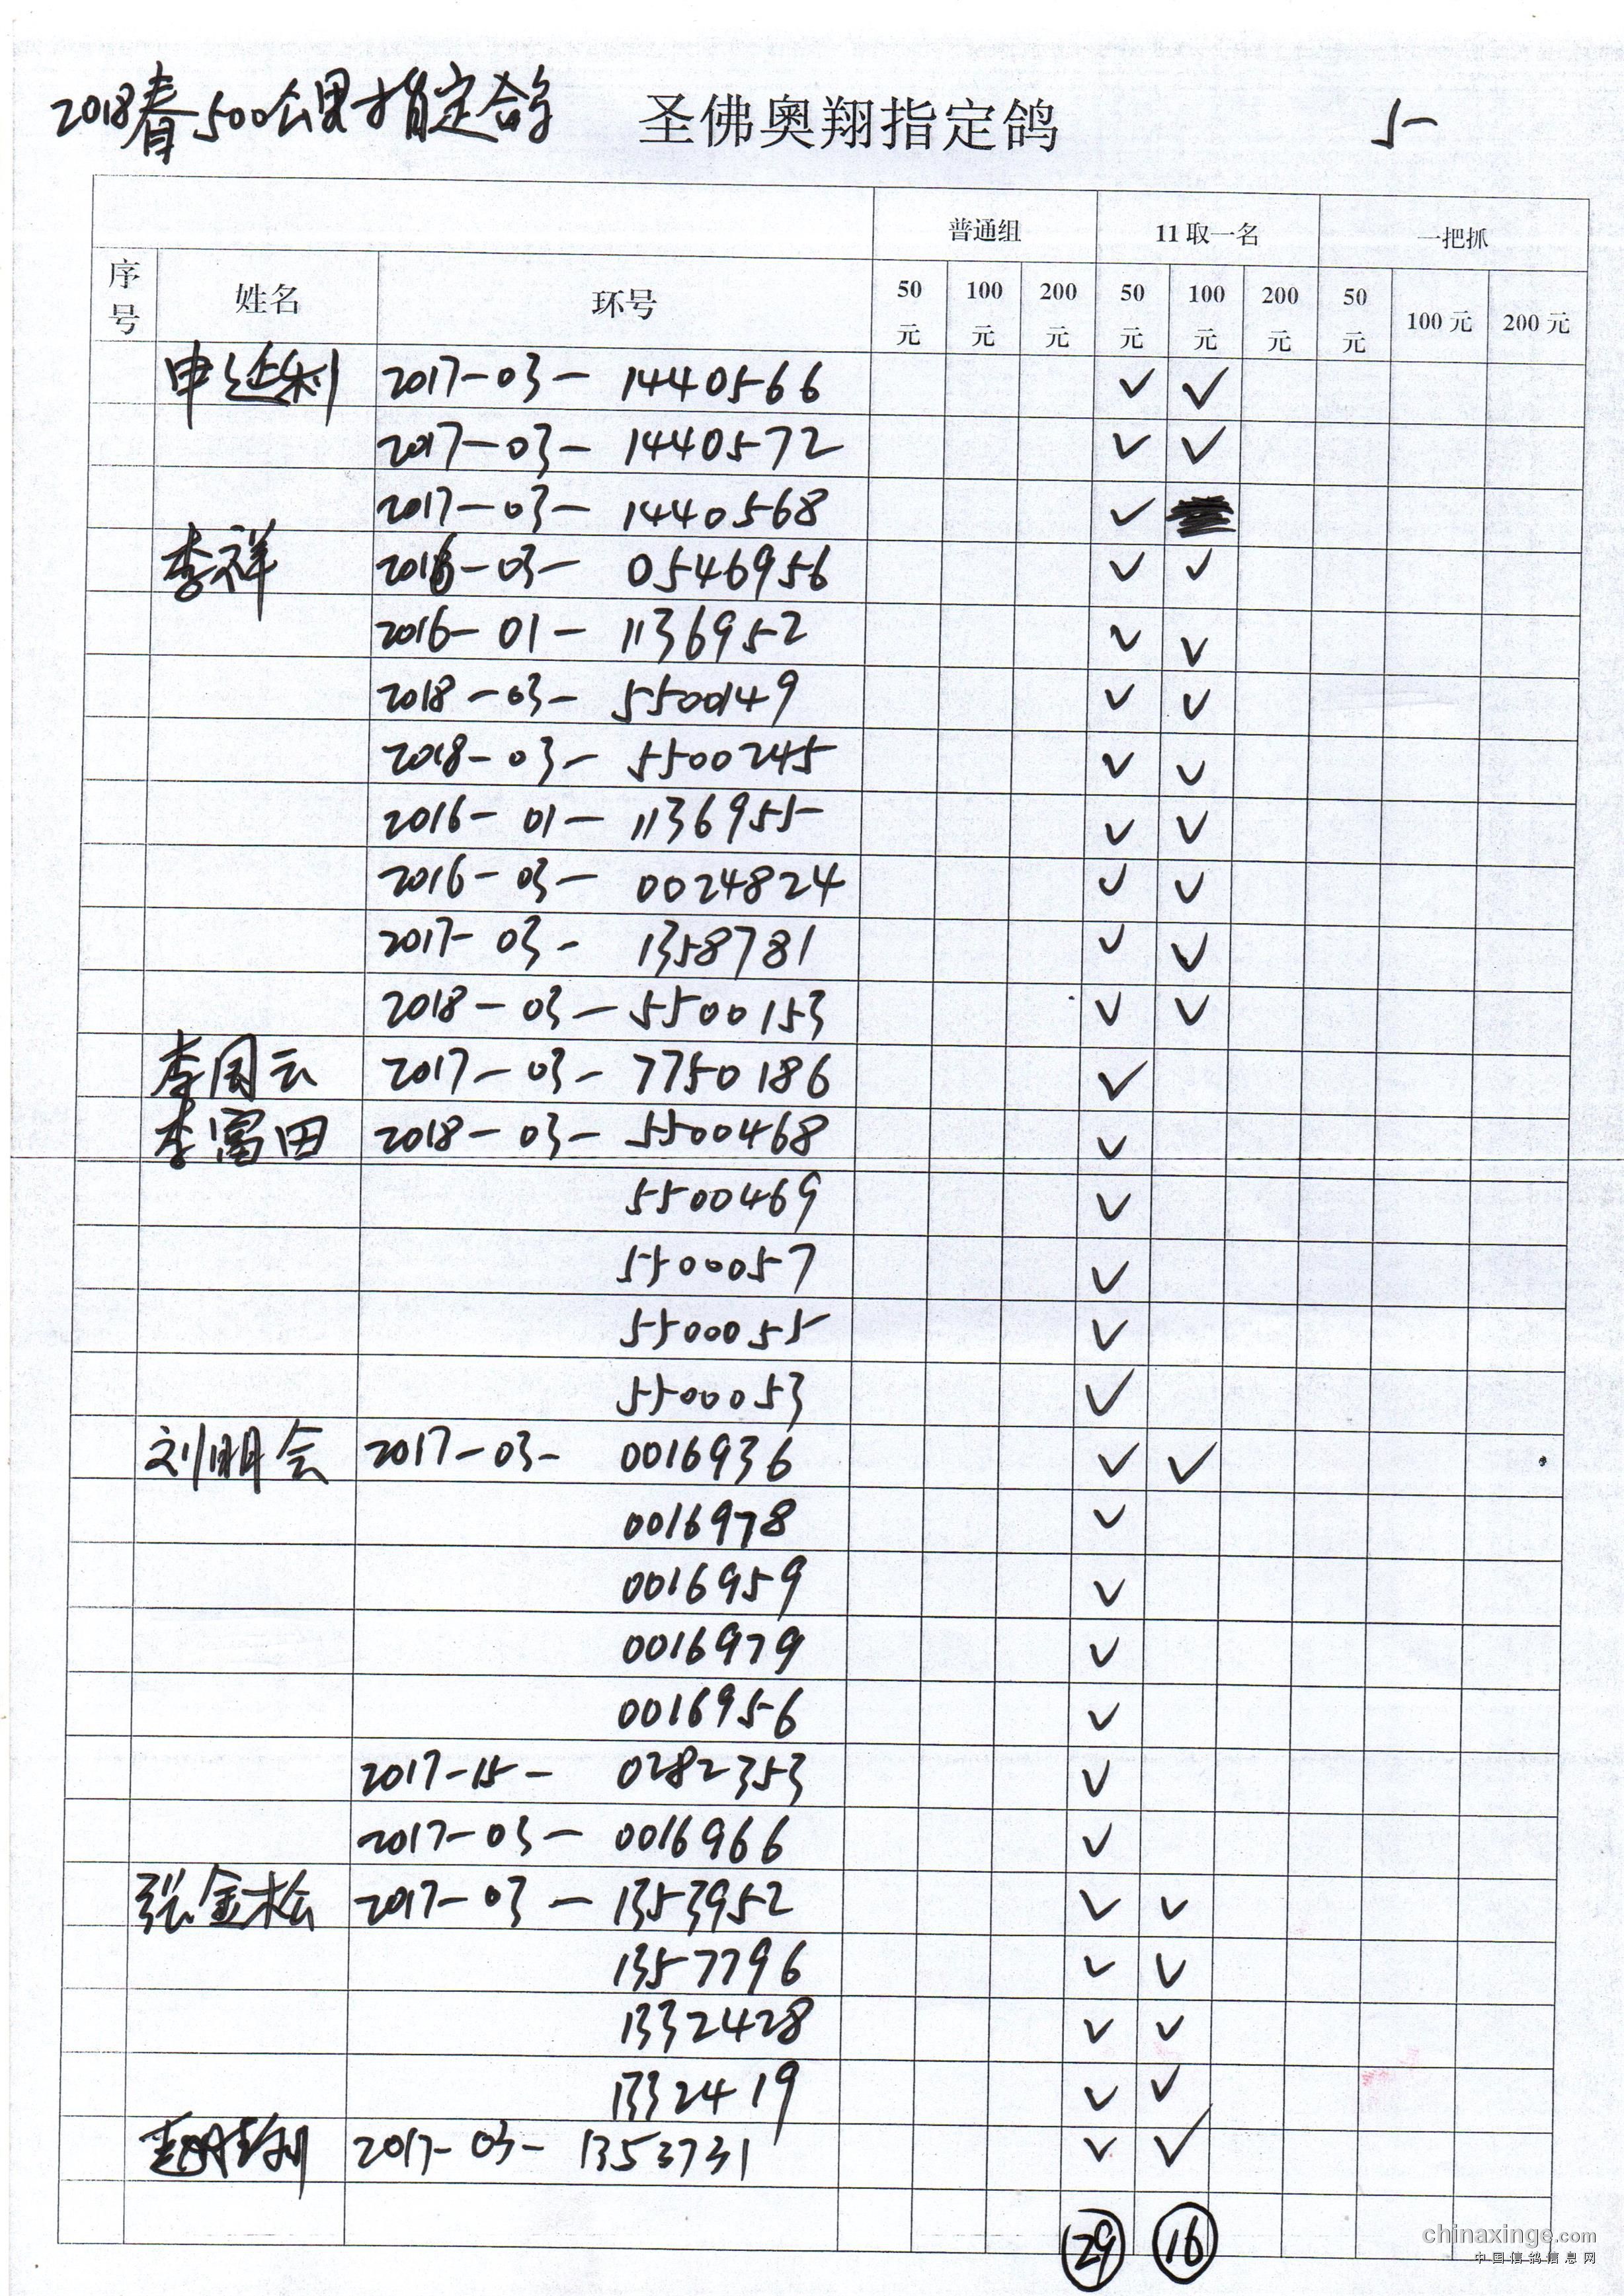 2018春500公里指定鸽 圣佛奥翔指定鸽 5
普通组 11取一名 一把抓
序号 姓名 环号 50元 100元 200元 50元 100元 200元 50元 100元 200元
申延利 2017-03-1440566 ✓ ✓
2017-03-1440572 ✓ ✓
2017-03-1440568 ✓
李祥 2016-03-0546956 ✓ ✓
2016-01-1136952 ✓ ✓
2018-03-5500149 ✓ ✓
2018-03-5500245 ✓ ✓
2016-01-1136955 ✓ ✓
2016-03-0024824 ✓ ✓
2017-03-1358781 ✓ ✓
2018-03-5500153 ✓ ✓
李国云 2017-03-7750186 ✓
李富田 2018-03-5500468 ✓
5500469 ✓
5500057 ✓
5500055 ✓
5500053 ✓
刘明会 2017-03-0016936 ✓ ✓
0016978 ✓
0016959 ✓
0016979 ✓
0016956 ✓
2017-15-0282353 ✓
2017-03-0016966 ✓
张金松 2017-03-1353952 ✓ ✓
1357796 ✓ ✓
1332428 ✓ ✓
1332419 ✓ ✓
2017-03-1353731 ✓ ✓
29 16
chinaxinge.com
中国信鸽信息网